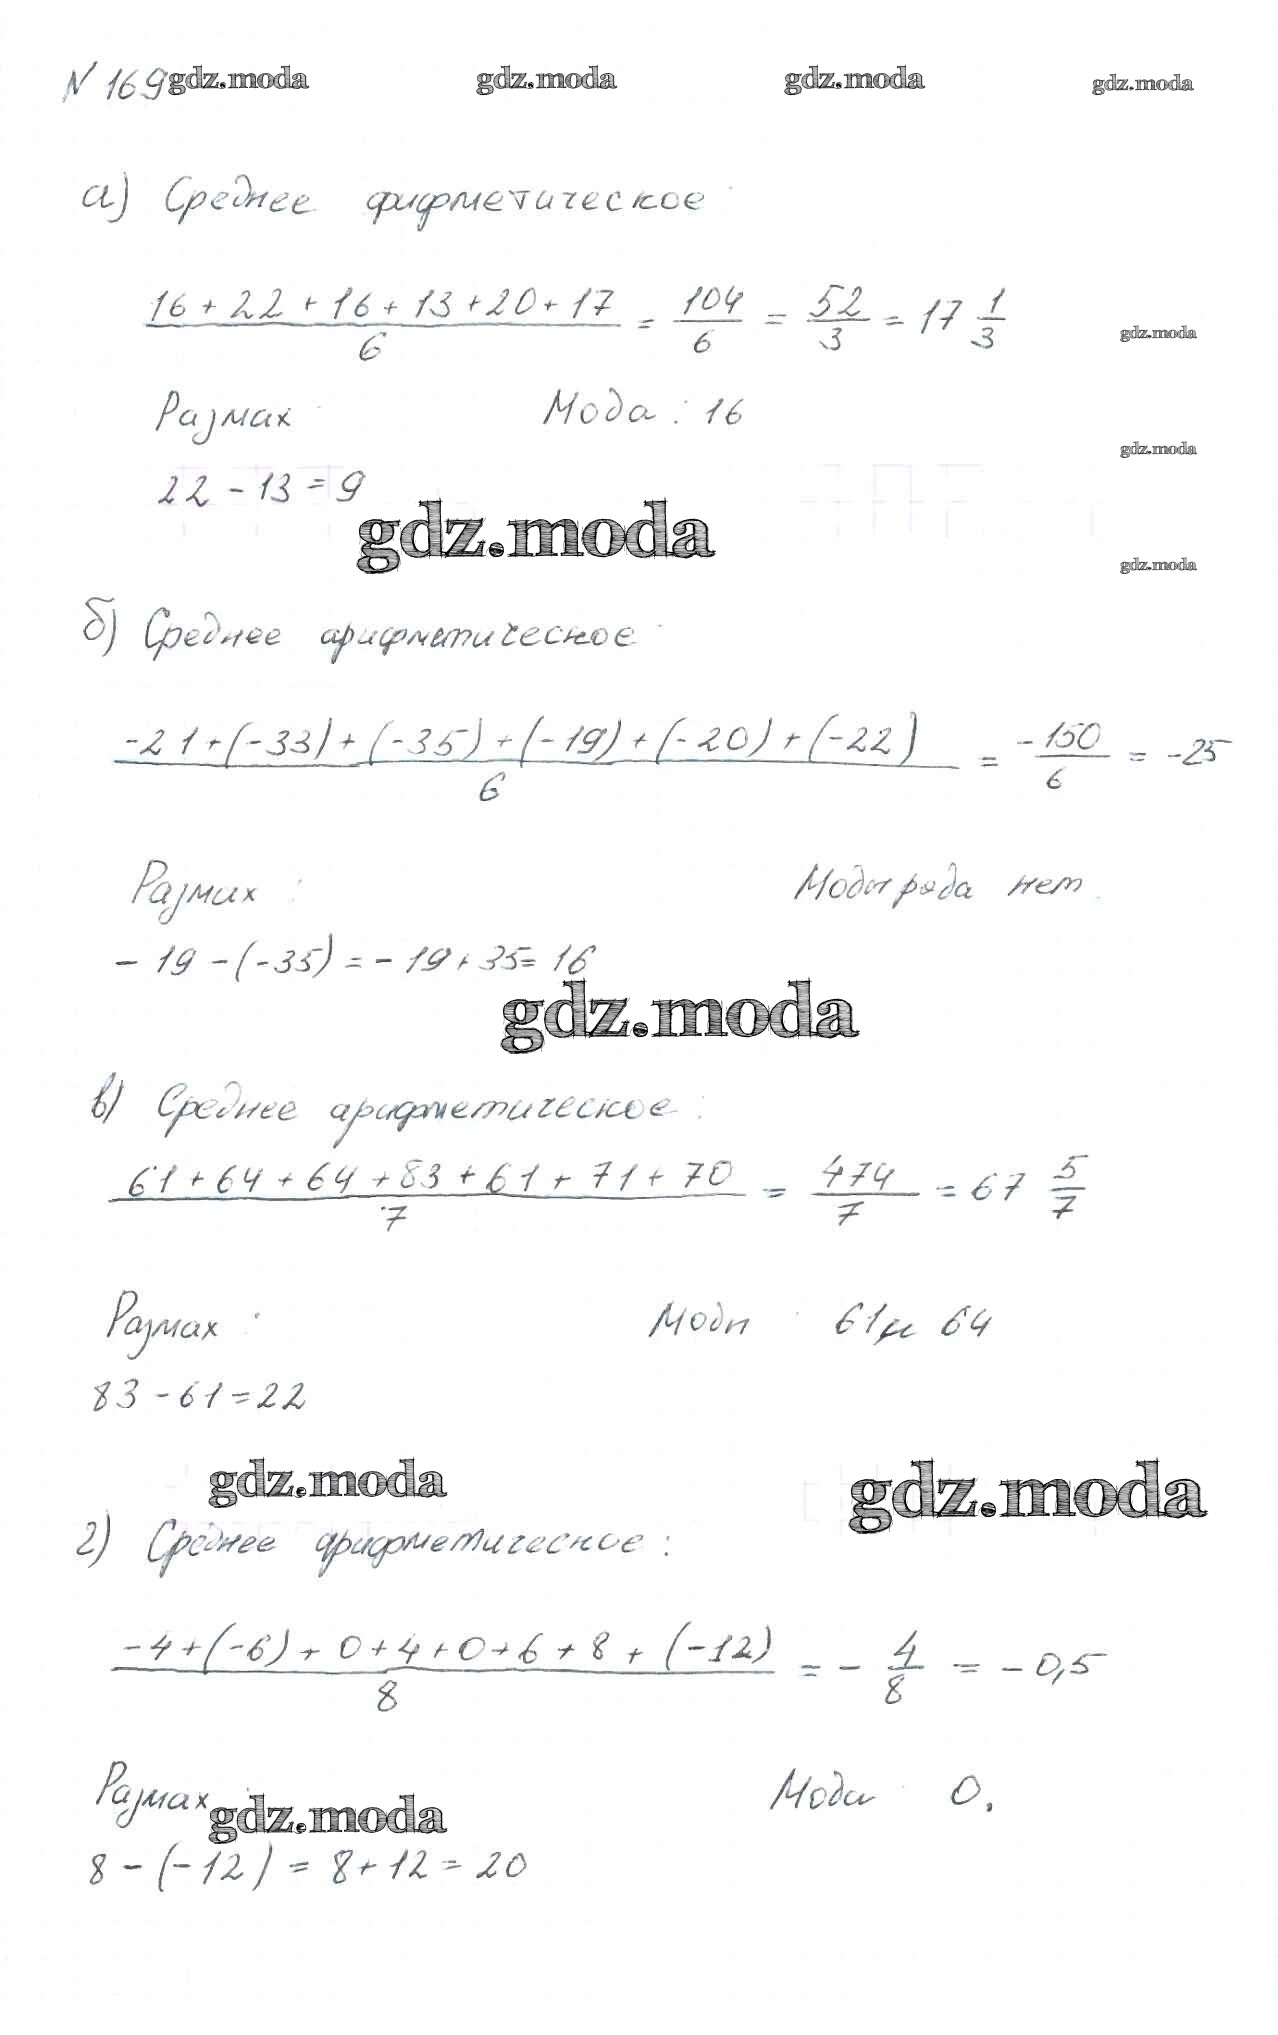 № 169 gdz.moda gdz.moda gdz.moda gdz.moda
а) Среднее арифметическое
16 + 22 + 16 + 13 + 20 + 17 / 6 = 104 / 6 = 52 / 3 = 17 1/3
gdz.moda
Размах Мода : 16
gdz.moda
22 - 13 = 9
gdz.moda
gdz.moda
б) Среднее арифметическое
-21 + (-33) + (-35) + (-19) + (-20) + (-22) / 6 = -150 / 6 = -25
Размах : Моды ряда нет.
- 19 - (-35) = - 19 + 35 = 16
gdz.moda
в) Среднее арифметическое :
61 + 64 + 64 + 83 + 61 + 71 + 70 / 7 = 474 / 7 = 67 5/7
Размах : Моды : 61 и 64
83 - 61 = 22
gdz.moda
gdz.moda
г) Среднее арифметическое :
-4 + (-6) + 0 + 4 + 0 + 6 + 8 + (-12) / 8 = - 4/8 = - 0,5
Размах Мода 0.
gdz.moda
8 - (-12) = 8 + 12 = 20